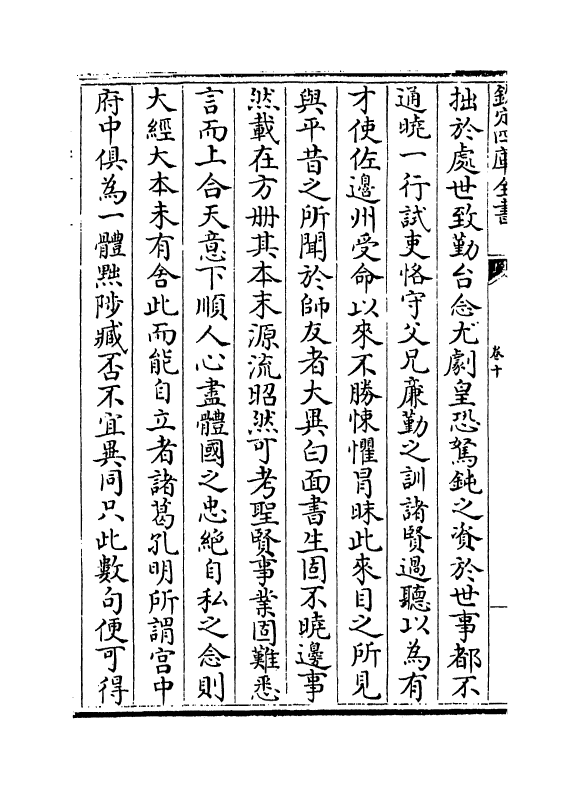 欽定四庫全書
卷十
拙於處世致勤台念尤劇皇恐駑鈍之資於世事都不
通曉一行試吏恪守父兄廉勤之訓諸賢過聽以為有
才使佐邊州受命以來不勝悚懼冐昧此來目之所見
與平昔之所聞於師友者大異白面書生固不曉邊事
然載在方册其本末源流昭然可考聖賢事業固難悉
言而上合天意下順人心盡體國之忠絶自私之念則
大經大本未有舍此而能自立者諸葛孔明所謂宫中
府中俱為一體黜陟臧否不宜異同只此數句便可得